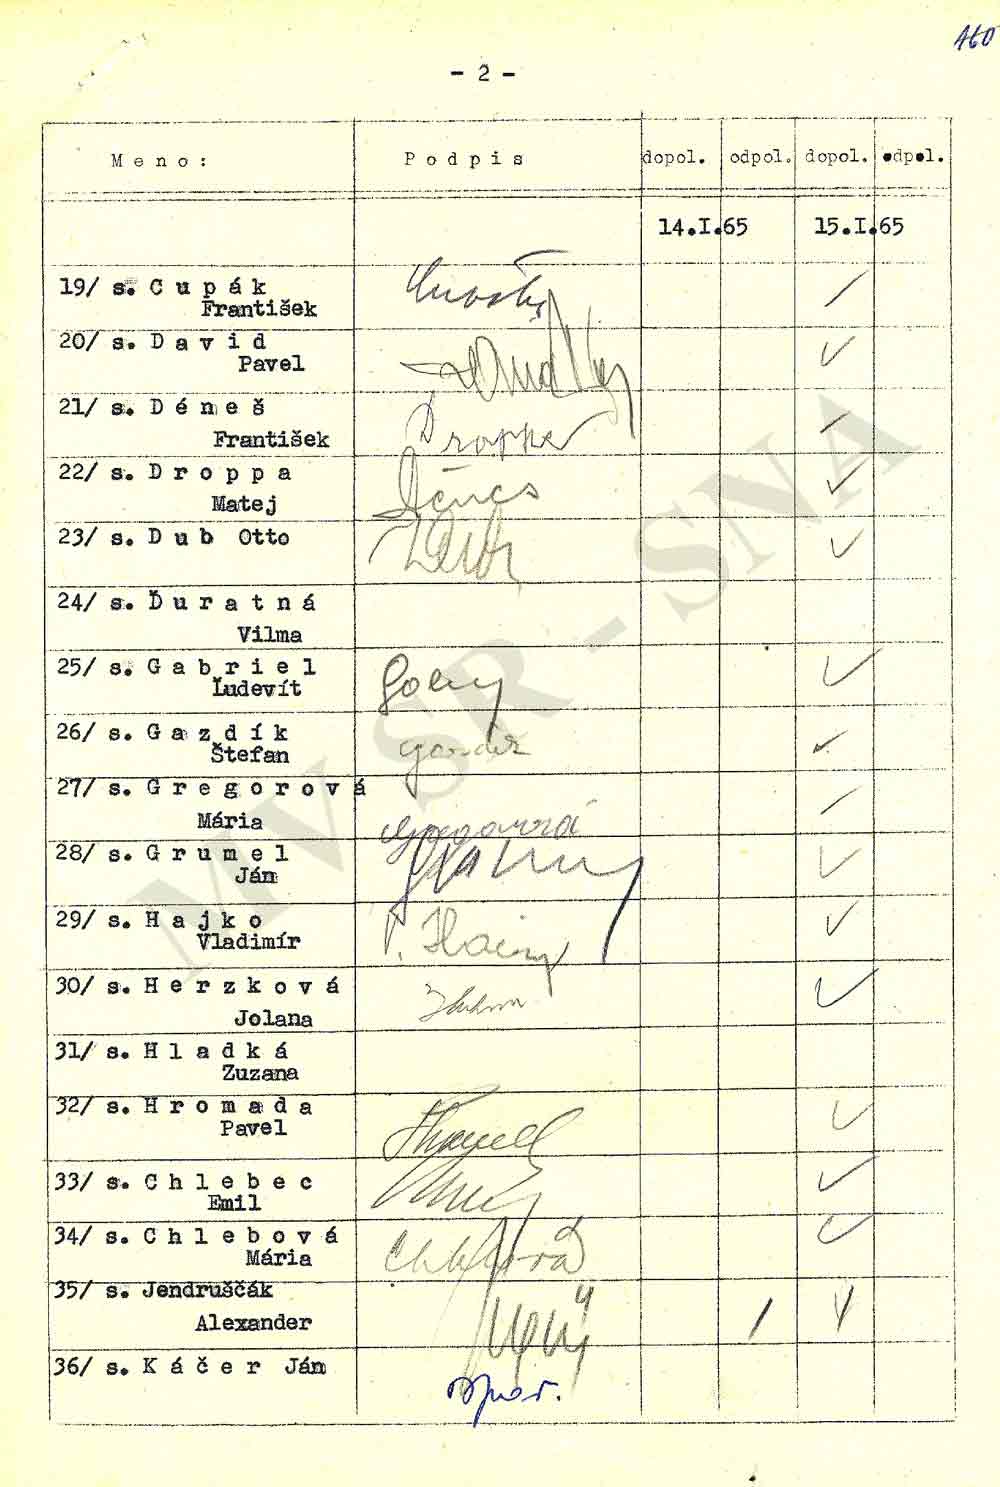 160
- 2 -
Meno: Podpis dopol. odpol. dopol. odpol.
14.I.65 15.I.65
19/ s. Cupák
František
20/ s. David
Pavel
21/ s. Déneš
František
Droppa
22/ s. Droppa
Matej
Déneš
23/ s. Dub Otto
24/ s. Ďuratná
Vilma
25/ s. Gabriel
Ľudevít
26/ s. Gazdík
Štefan
Gazdík
27/ s. Gregorová
Mária
Gregorová
28/ s. Grumel
Ján
29/ s. Hajko
Vladimír
30/ s. Herzková
Jolana
31/ s. Hladká
Zuzana
32/ s. Hromada
Pavel
33/ s. Chlebec
Emil
34/ s. Chlebová
Mária
Chlebová
35/ s. Jendruščák
Alexander
36/ s. Káčer Ján
MV SR - SNA